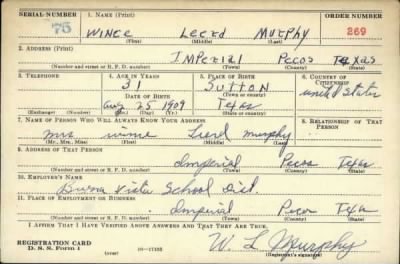 SERIAL NUMBER 1. NAME (Print) ORDER NUMBER
75 Murphy 269
(First) (Middle) (Last)
2. ADDRESS (Print)
IMPERIAL Pecos Texas
(Number and street or R. F. D. number) (Town) (County) (State)
3. TELEPHONE 4. AGE IN YEARS 5. PLACE OF BIRTH 6. COUNTRY OF CITIZENSHIP
31 SUTTON United States
DATE OF BIRTH (Town or county)
Aug 25 1909 Texas
(Exchange) (Number) (Mo.) (Day) (Yr.) (State or country)
7. NAME OF PERSON WHO WILL ALWAYS KNOW YOUR ADDRESS 8. RELATIONSHIP OF THAT PERSON
Mrs Murphy
(Mr., Mrs., Miss) (First) (Middle) (Last)
9. ADDRESS OF THAT PERSON
Imperial Pecos Texas
(Number and street or R. F. D. number) (Town) (County) (State)
10. EMPLOYER'S NAME
Buena Vista School Dist.
11. PLACE OF EMPLOYMENT OR BUSINESS
Imperial Pecos Texas
(Number and street or R. F. D. number) (Town) (County) (State)
I AFFIRM THAT I HAVE VERIFIED ABOVE ANSWERS AND THAT THEY ARE TRUE.
REGISTRATION CARD
D. S. S. Form 1 (over) W. L Murphy
(Registrant's signature)